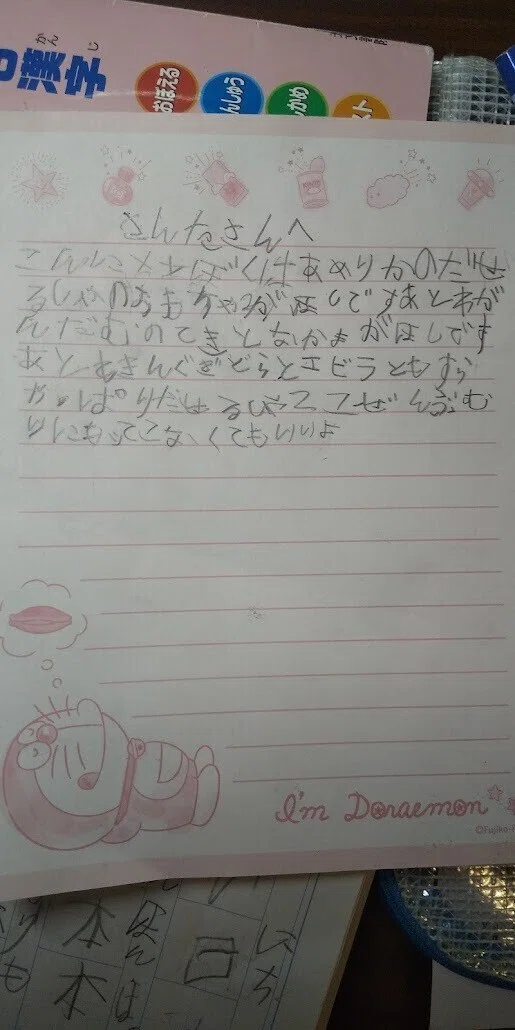 漢字
かん
じ
おぼえる
んしゅう
かめ
スト
さんたさんへ
こんにちはぼくはあめりかのだせ
るしゃのおもちゃがほしですあとわが
んだむのてきとなかまがほしです
あときんぐぎどらとエビラともすら
やっぱりだせるしゃここぜんぶむ
りにもってこなくてもいいよ
I'm Doraemon
©Fujiko-
本 ほん
本 は
口
いち
も